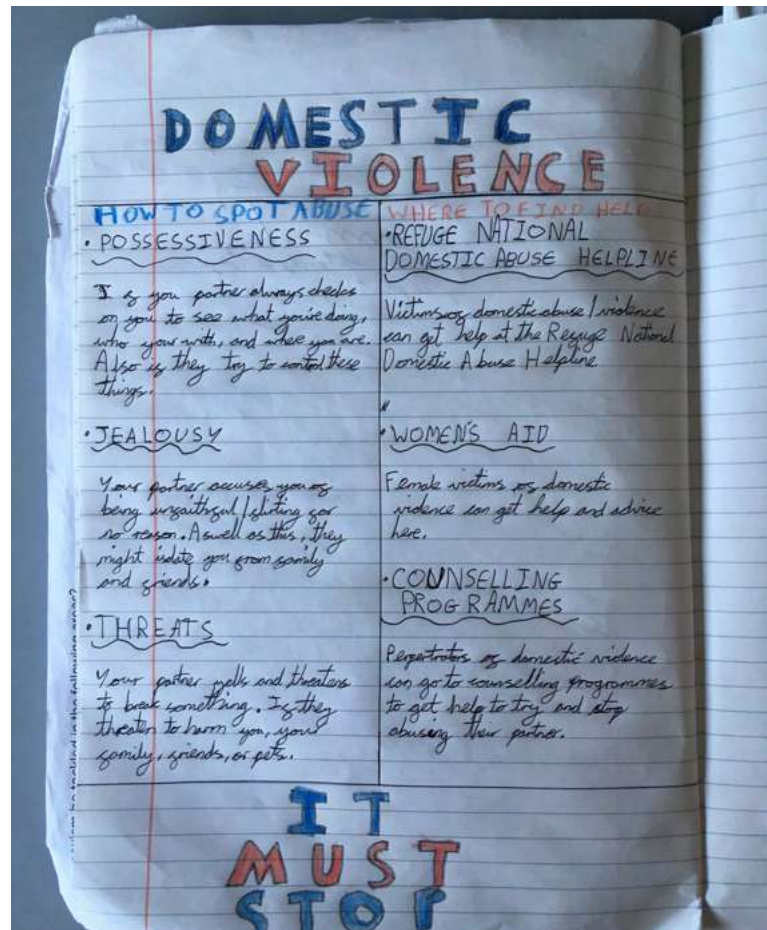 DOMESTIC
VIOLENCE
HOW TO SPOT ABUSE
• POSSESSIVENESS
If you partner always checks
on you to see what you're doing,
who your with, and where you are.
Also if they try to control these
things.
• JEALOUSY
Your partner accuses you of
being unfaithful/flirting for
no reason. Aswell as this, they
might isolate you from family
and friends.
• THREATS
Your partner yells and threatens
to break something. If they
threaten to harm you, your
family, friends, or pets.
WHERE TO FIND HELP
• REFUGE NATIONAL
DOMESTIC ABUSE HELPLINE
Victims of domestic abuse/violence
can get help at the Refuge National
Domestic Abuse Helpline
"
• WOMEN'S AID
Female victims of domestic
violence can get help and advice
here.
• COUNSELLING
PROGRAMMES
Perpertrators of domestic violence
can go to counselling programmes
to get help to try and stop
abusing their partner.
IT
MUST
STOP
be tackled in the following areas?